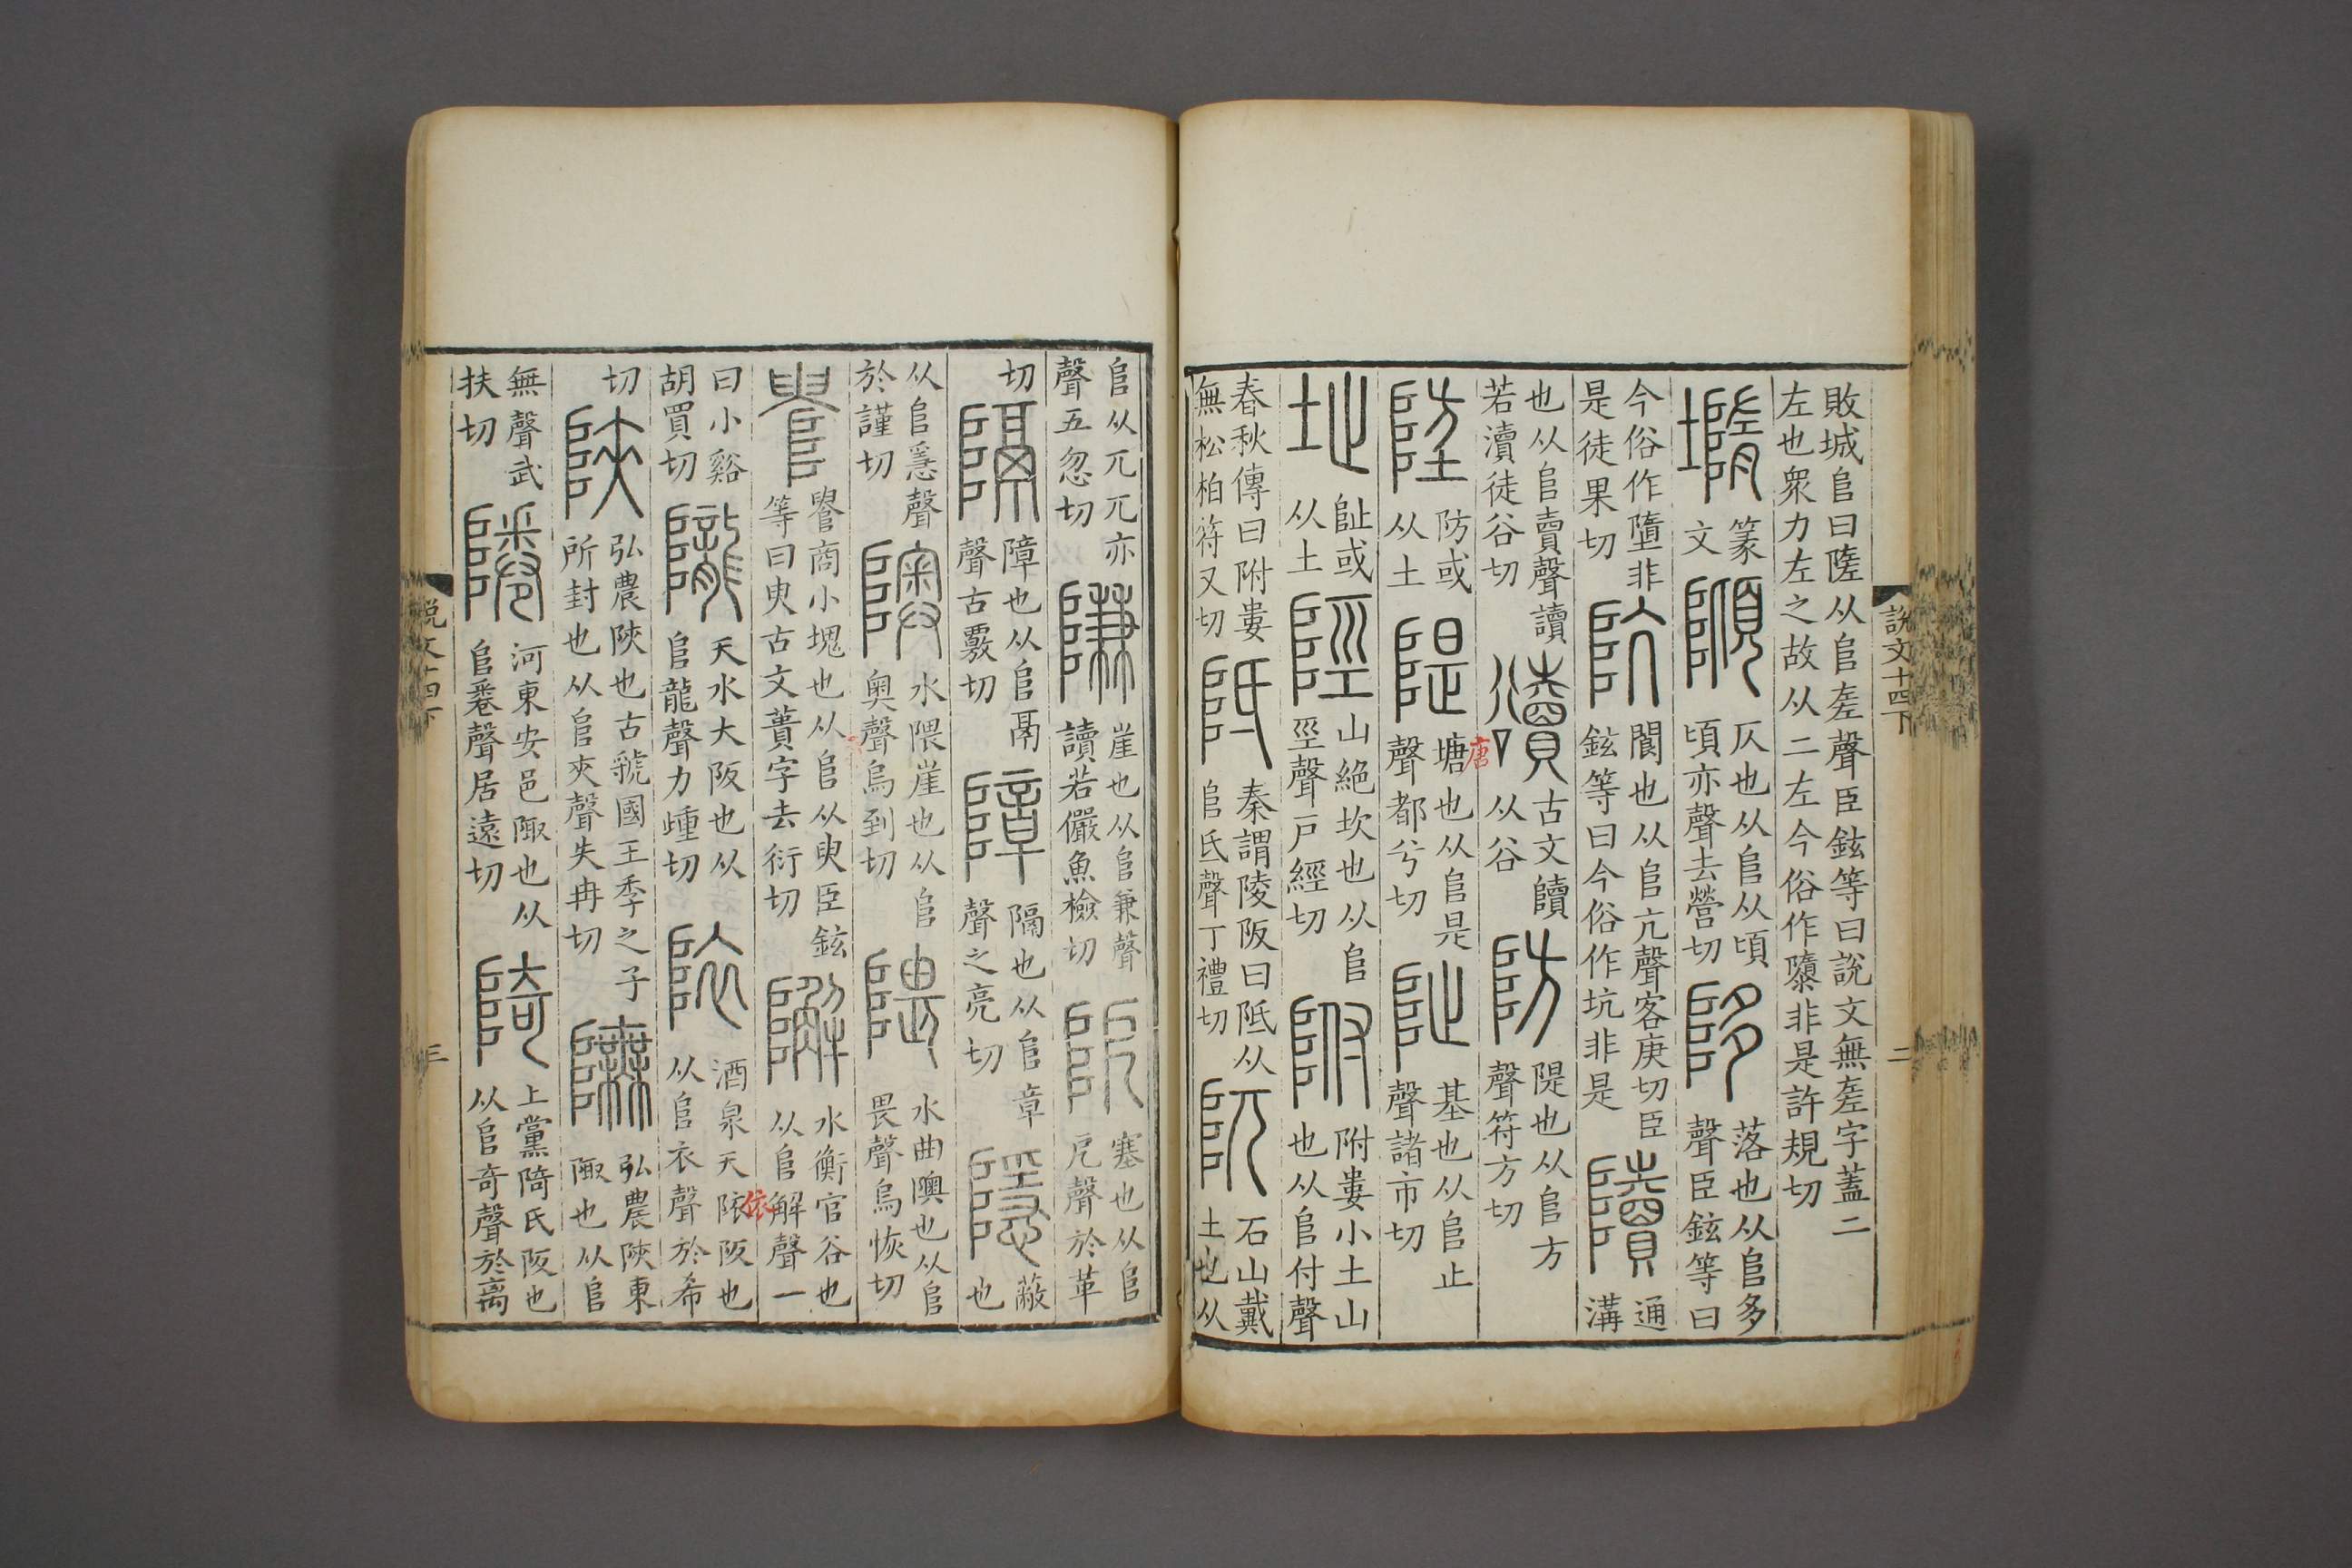 敗城𨸏曰隓从𨸏㚍聲臣鉉等曰說文無㚍字蓋二
左也眾力左之故从二左今俗作隳非是許規切
篆文 仄也从𨸏从頃頃亦聲去營切 陊 落也从𨸏多聲臣鉉等曰
今俗作墮非是徒果切 阬 閬也从𨸏亢聲客庚切臣鉉等曰今俗作坑非是 隫 通溝
也从𨸏賣聲讀若瀆徒谷切 古文隫从谷 防 隄也从𨸏方聲符方切
埅 防或从土 隄 塘也从𨸏是聲都兮切 阯 基也从𨸏止聲諸市切
唐
址 阯或从土 陘 山絕坎也从𨸏巠聲戶經切 附 附婁小土山也从𨸏付聲
春秋傳曰附婁無松柏符又切 阺 秦謂陵阪曰阺从𨸏氐聲丁禮切 阢 石山戴土也从
說文十四下 二
𨸏从兀兀亦聲五忽切 隒 崖也从𨸏兼聲讀若儼魚檢切 阸 塞也从𨸏戹聲於革
切 隔 障也从𨸏鬲聲古覈切 障 隔也从𨸏章聲之亮切 隱 蔽也
从𨸏㥯聲於謹切 隩 水隈崖也从𨸏奧聲烏到切 隈 水曲隩也从𨸏畏聲烏恢切
商小塊也从𨸏从臾臣鉉等曰臾古文蕢字去衍切 水衡官谷也从𨸏解聲一
曰小谿胡買切 隴 天水大阪也从𨸏龍聲力歱切 酒泉天阪也从𨸏衣聲於希
依
切 陝 弘農陝也古虢國王季之子所封也从𨸏夾聲失冉切 弘農陝東陬也从𨸏
無聲武扶切 河東安邑陬也从𨸏聲居遠切 陭 上黨陭氏阪也从𨸏奇聲於离
說文十四下 三